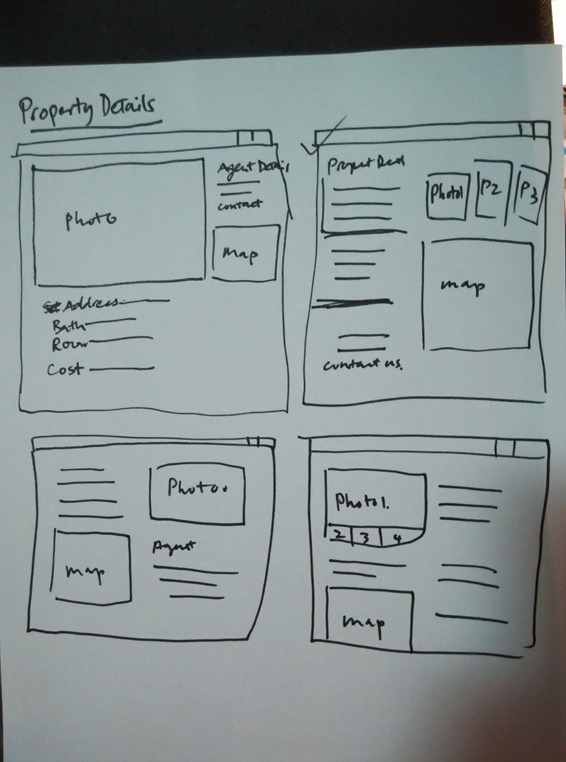 Property Details
Photo
Agent Details
contact
Map
Address
Bath
Room
Cost
Photo1
P2
P3
map
contact us.
Photo.
map
Agent
Photo1.
2 3 4
map